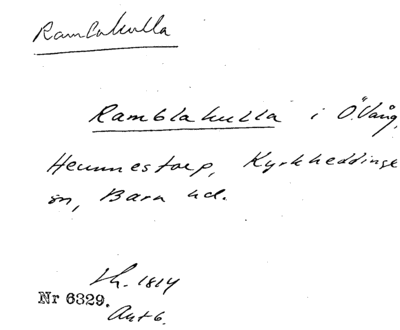 Ramblakulla
Ramblakulla i Ö. Vång,
Hemmestorp, Kyrkheddinge
sn, Bara hd.
Sk. 1814
Nr 6329.
Akt 6.